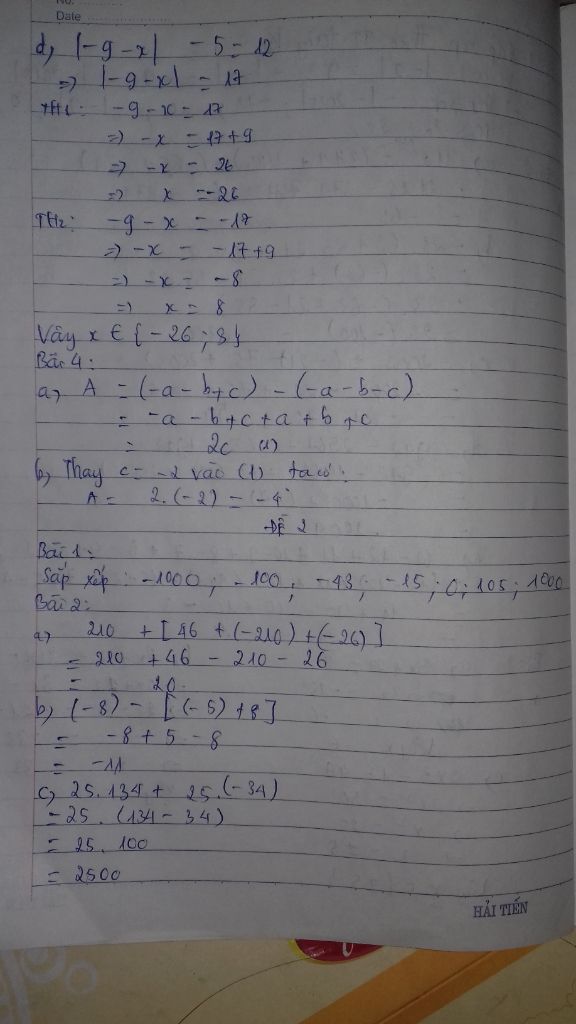 No.
Date
d, |-9-x| -5 = 12
=> |-9-x| = 17
TH1: -9-x = 17
=> -x = 17+9
=> -x = 26
=> x = -26
TH2: -9-x = -17
=> -x = -17+9
=> -x = -8
=> x = 8
Vậy x ∈ {-26; 8}
Bài 4:
a, A = (-a-b+c) - (-a-b-c)
= -a-b+c+a+b+c
= 2c (1)
b, Thay c = -2 vào (1) ta có:
A = 2.(-2) = -4
ĐỀ 2
Bài 1:
Sắp xếp: -1000; -100; -43; -15; 0; 105; 1000
Bài 2:
a, 210 + [46 + (-210) + (-26)]
= 210 + 46 - 210 - 26
= 20.
b, (-8) - [(-5) + 8]
= -8 + 5 - 8
= -11
c, 25.134 + 25.(-34)
= 25.(134-34)
= 25.100
= 2500
HẢI TIẾN